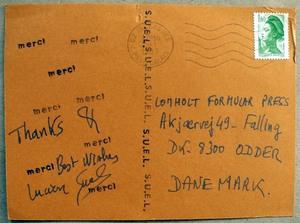 merci
merci
merci
merci
merci
merci
Thanks
merci
Best Wishes
merci
S.U.E.L.S.U.E.L.S.U.E.L.S.U.E.L.
LOMHOLT FORMULAR PRESS
Akjærvej 49 - Falling
DK. 8300 ODDER
DANEMARK.